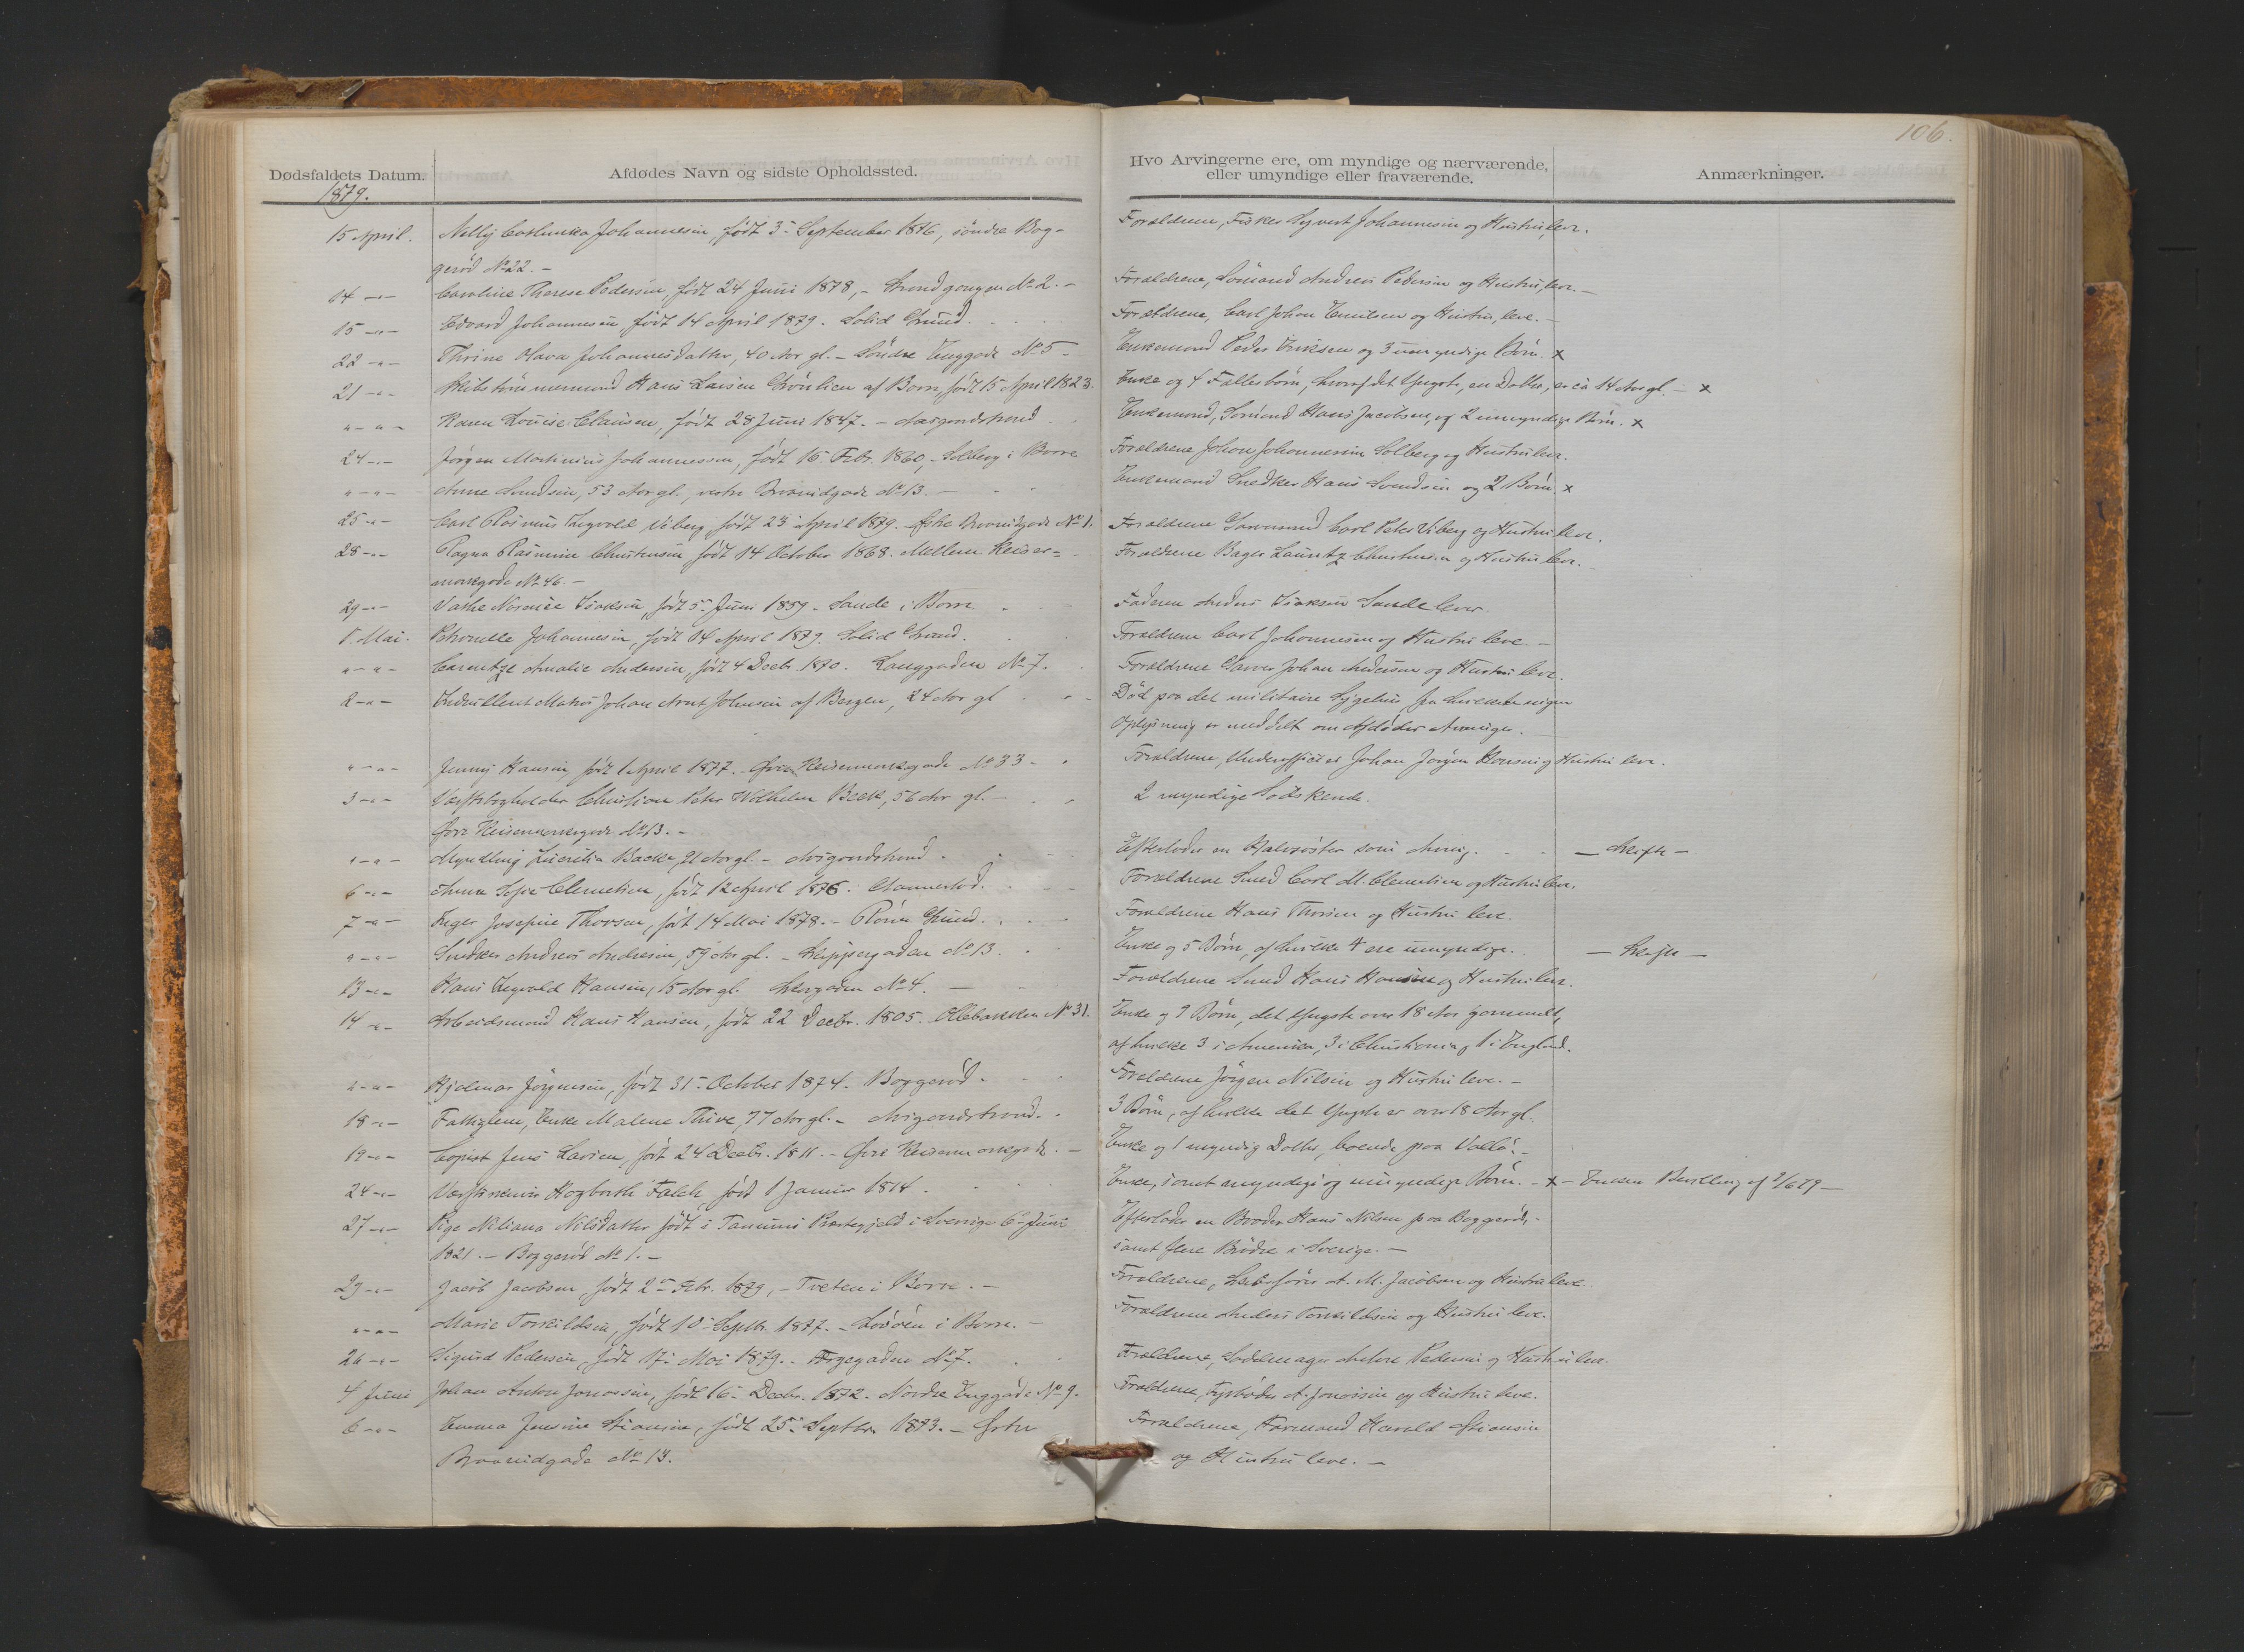 106.
Dødsfaldets Datum.
Afdødes Navn og sidste Opholdssted.
Hvo Arvingerne ere, om myndige og nærværende,
eller umyndige eller fraværende.
Anmærkninger.
1879.
15 April. Nelly Johannesen, født 3 September 1876, søndre Bog-
Forældrene, Fisker Syvert Johannesen og Hustru, leve.
gerød No 22. -
14 -"- Caroline Therese Pedersen, født 24 Juni 1878, - No 2. -
Forældrene, Sømand Andreas Pedersen og Hustru, leve. -
15 -"- Edvard Johannesen, født 14 April 1879. Solid Grund.
Forældrene, Carl Johan Emilsen og Hustru, leve. -
22 -"- Thrine Olava Johannesdatter, 40 Aar gl. - Søndre Enggade No 5 -
Enkemand Peder Eriksen og 3 umyndige Børn. x
21 -"- Skibstømmermand Hans Larsen Grønlien af Borre, født 15 April 1823.
Enke og 4 Fællesbørn, hvoraf det Yngste, en Datter, er ca 14 Aar gl. - x
"-"- Karen Louise Clausen, født 28 Juni 1847. -
Enkemand, Sømand Hans Jacobsen, og 2 umyndige Børn. x
24 -"- Jørgen Martinius Johannessen, født 16 Febr. 1860, - Solberg i Borre
Forældrene Johan Johannesen Solberg og Hustru leve.
"-"- Anne Svendsen, 53 Aar gl., vestre No 13. -
Enkemand Snedker Hans Svendsen og 2 Børn. x
25 -"- Carl Rasmus Ingvald Viberg, født 23 April 1879. - No 1.
Forældrene Carl Peter Viberg og Hustru leve.
28 -"- Ragna Rasmine Christensen født 14 October 1868. Mellem Keiser=
Forældrene Bager Lauritz Christensen og Hustru leve.
No 46. -
29 -"- Isaksen, født 5 Juni 1859. Sande i Borre.
Faderen Anders Isaksen Sande lever.
1. Mai. Petronelle Johannesen, født 14 April 1879. Solid Grund.
Forældrene Carl Johannesen og Hustru leve. -
"-"- Amalie Andersen, født 4 Decbr. 1870. Langgaden No 7.
Forældrene Johan Andersen og Hustru leve.
2 -"- Matros Johan Arnt Johnsen af Bergen, 24 Aar gl
Død paa det militaire Sygehus, fra hvilket ingen
Oplysning er meddelt om Afdødes Arvinger.
"-"- Jenny Hansen født 1 April 1877. - Øvre No 33 -
Forældrene, Underofficer Johan Jørgen Hansen og Hustru leve.
3 -"- Værftsbogholder Christian Peter Wilhelm Beck, 56 Aar gl. -
2 myndige Sødskende.
Øvre No 13. -
"-"- Myndling Lucretia Backe, 21 Aar gl. -
Efterlader en Halvsøster som Arving.
- Skifte -
6 -"- Anna Sofie Clemetsen, født 12 April 1876.
Forældrene Smed Carl M. Clemetsen og Hustru leve.
7 -"- Inger Josefine Thorsen, født 14 Mai 1878. - Grund.
Forældrene Hans Thorsen og Hustru leve.
"-"- Snedker Andreas Andresen, 59 Aar gl. - Skippergaden No 13.
Enke og 5 Børn, af hvilke 4 ere umyndige.
- Skifte -
13 -"- Hans Ingvald Hansen, 15 Aar gl. No 4. -
Forældrene Smed Hans Hansen og Hustru leve.
14 -"- Arbeidsmand Hans Hansen, født 22 Decbr. 1805. Ollebakken No 31.
Enke og 9 Børn, det Yngste over 18 Aar gammelt,
af hvilke 3 i Amerika, 3 i Christiania og 1 i England.
"-"- Hjalmar Jørgensen, født 31 October 1874. Boggerød -
Forældrene Jørgen Nilsen og Hustru leve. -
18 -"- Fattiglem, Enke Malene Thive, 77 Aar gl. -
3 Børn, af hvilke det Yngste er over 18 Aar gl.
19 -"- Copist Jens Larsen, født 24 Decbr. 1811. - Øvre
Enke og 1 myndig Datter, boende paa Vallø. -
24 -"- Hogbarth Falck, født 1 Januar 1814.
Enke, samt myndige og umyndige Børn. - x - Enkens Bevilling af 2/6 79 -
27 -"- Pige Niliana Nilsdatter født i Tanums Præstegjeld i Sverige 6 Juni
Efterlader en Broder Hans Nilsen paa Boggerød, -
1821. - Boggerød No 1. -
samt flere Brødre i Sverige. -
29 -"- Jacob Jacobsen, født 2 Febr. 1879, - Tveten i Borre. -
Forældrene, Skibsfører A. M. Jacobsen og Hustru leve.
"-"- Marie Torkildsen, født 10 Septbr. 1877. - i Borre. -
Forældrene Anders Torkildsen og Hustru leve.
26 -"- Sigurd Pedersen, født 17 Mai 1879. - No 7.
Forældrene, Sadelmager Pedersen og Hustru leve.
4 Juni Johan Anton Jonassen, født 16 Decbr. 1872. Nordre Enggade No 9.
Forældrene, Fyrbøder A. Jonassen og Hustru leve.
6 -"- Emma Jensine Stiansen, født 25 Septbr. 1873. - Østre
Forældrene, Formand Harald Stiansen
No 14.
og Hustru leve. -